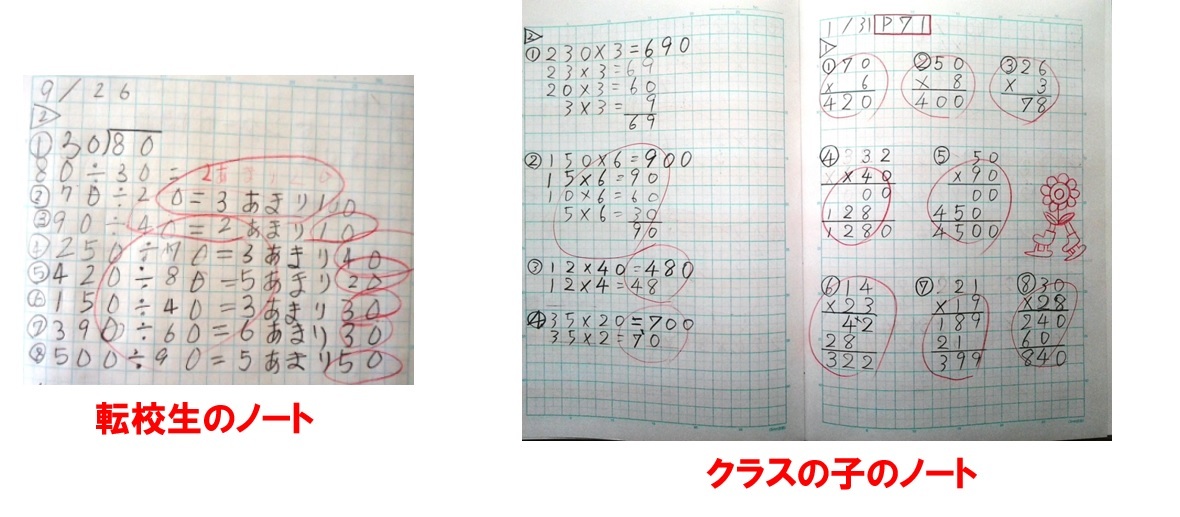 9/26
2
① 30)80
80÷30=2あまり20
② 70÷20=3あまり10
③ 90÷40=2あまり10
④ 250÷70=3あまり40
⑤ 420÷80=5あまり20
⑥ 150÷40=3あまり30
⑦ 390÷60=6あまり30
⑧ 500÷90=5あまり50
転校生のノート
2
① 230×3=690
23×3=69
20×3=60
3×3=9
69
② 150×6=900
15×6=90
10×6=60
5×6=30
90
③ 12×40=480
12×4=48
④ 35×20=700
35×2=70
1/31 P71
1
① 70 ② 50 ③ 26
×6 ×8 ×3
420 400 78
④ 32 ⑤ 50
×40 ×90
00 00
128 450
1280 4500
⑥ 14 ⑦ 21 ⑧ 30
×23 ×19 ×28
42 189 240
28 21 60
322 399 840
クラスの子のノート